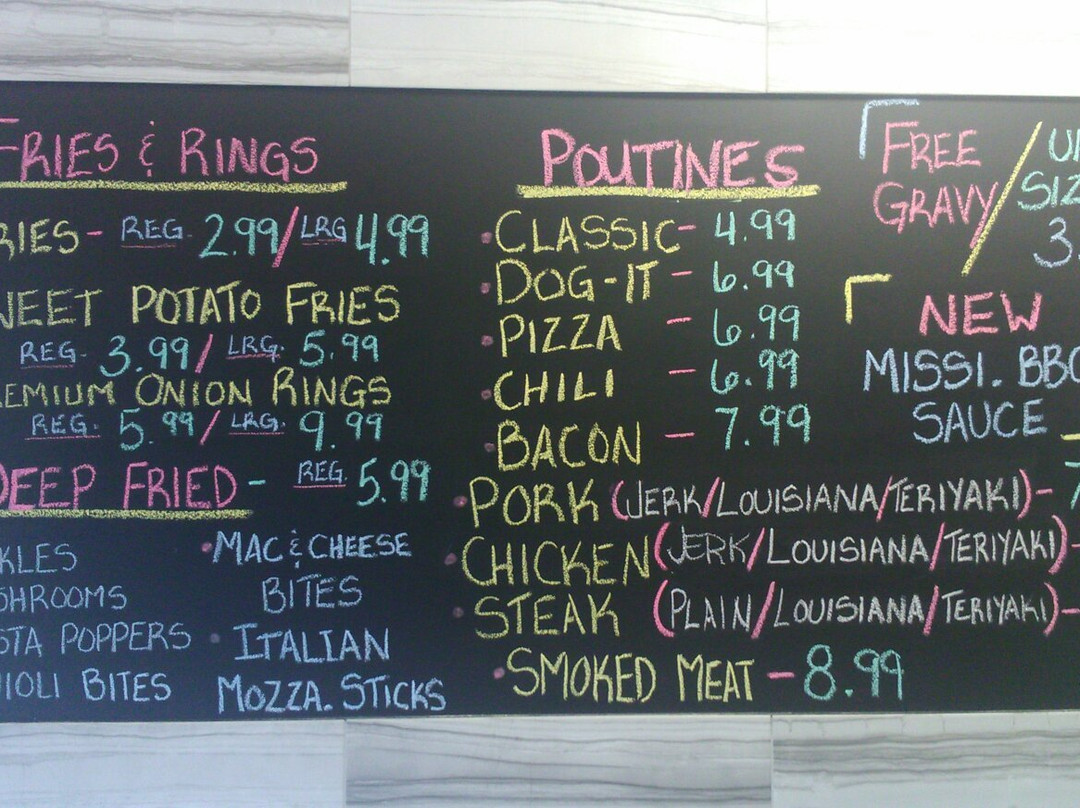 FRIES & RINGS
RIES - REG. 2.99/LRG 4.99
WEET POTATO FRIES
REG. 3.99/LRG. 5.99
EMIUM ONION RINGS
REG. 5.99/LRG. 9.99
DEEP FRIED - REG. 5.99
KLES
SHROOMS
STA POPPERS
IOLI BITES
• MAC & CHEESE
BITES
• ITALIAN
MOZZA. STICKS
POUTINES
• CLASSIC - 4.99
• DOG-IT - 6.99
• PIZZA - 6.99
• CHILI - 6.99
• BACON - 7.99
• PORK (JERK/LOUISIANA/TERIYAKI) - 7
• CHICKEN (JERK/LOUISIANA/TERIYAKI) -
• STEAK (PLAIN/LOUISIANA/TERIYAKI) -
• SMOKED MEAT - 8.99
FREE
GRAVY/
UP
SIZ
3.
NEW
MISSI. BBQ
SAUCE